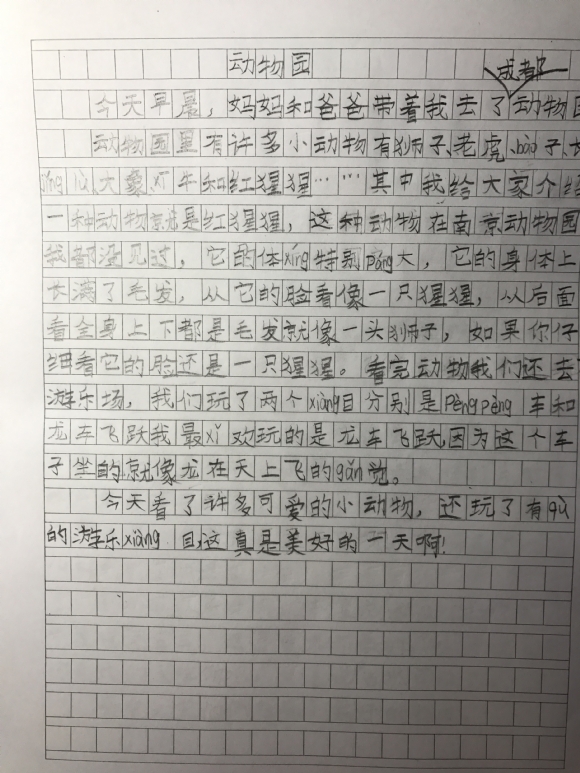 动物园
成都
今天早晨，妈妈和爸爸带着我去了动物
动物园里有许多小动物有狮子、老虎、bào子、长
jǐng lù、大象、xī牛和红猩猩……其中我给大家介绍
一种动物就是红猩猩，这种动物在南京动物园
我都没见过，它的体xíng特别páng大，它的身体上
长满了毛发，从它的脸看像一只猩猩，从后面
看全身上下都是毛发就像一头狮子，如果你仔
细看它的脸还是一只猩猩。看完动物我们还去
游乐场，我们玩了两个xiàng目分别是pèngpèng车和
龙车飞跃我最xǐ欢玩的是龙车飞跃，因为这个车
子坐的就像龙在天上飞的gǎn觉。
今天看了许多可爱的小动物，还玩了有qù
的游乐xiàng目，这真是美好的一天啊！